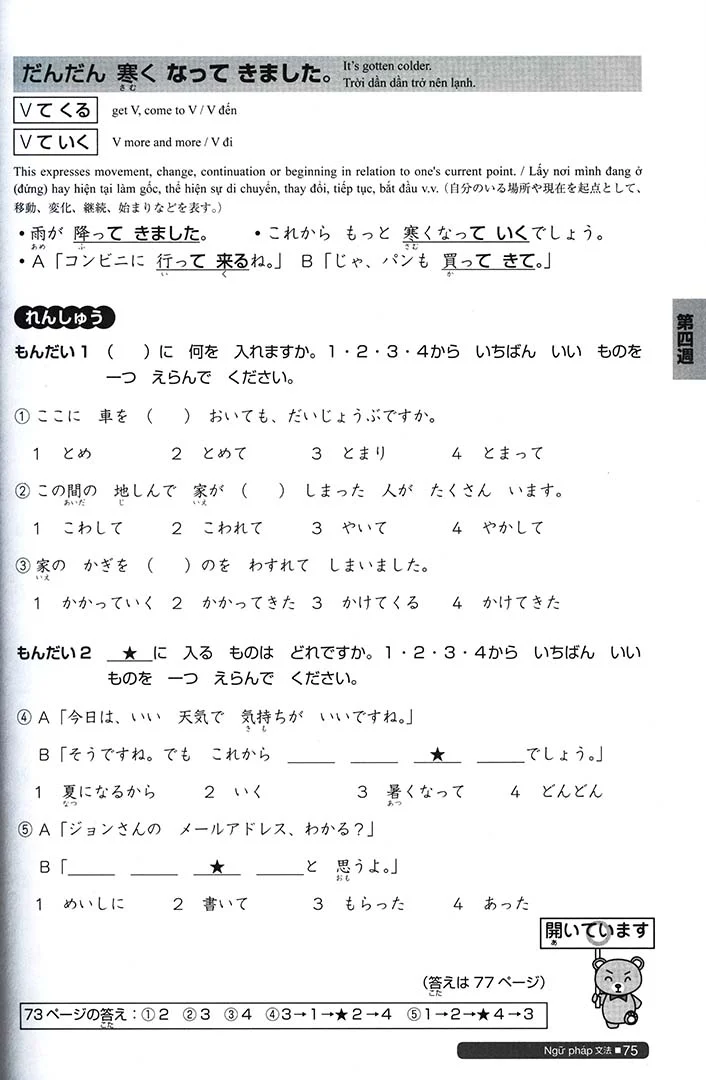 だんだん 寒く なって きました。
さむ
It's gotten colder.
Trời dần dần trở nên lạnh.
Vて くる
get V, come to V / V đến
Vて いく
V more and more / V đi
This expresses movement, change, continuation or beginning in relation to one's current point. / Lấy nơi mình đang ở
(đứng) hay hiện tại làm gốc, thể hiện sự di chuyển, thay đổi, tiếp tục, bắt đầu v.v.（自分のいる場所や現在を起点として、
移動、変化、継続、始まりなどを表す。）
・雨が 降って きました。 ・これから もっと 寒くなって いくでしょう。
あめ ふ さむ
・A「コンビニに 行って 来るね。」 B「じゃ、パンも 買って きて。」
い く か
れんしゅう
もんだい1 （ ）に 何を 入れますか。1・2・3・4から いちばん いい ものを
一つ えらんで ください。
① ここに 車を （ ） おいても、だいじょうぶですか。
1 とめ 2 とめて 3 とまり 4 とまって
② この間の 地しんで 家が （ ） しまった 人が たくさん います。
あいだ じ いえ
1 こわして 2 こわれて 3 やいて 4 やかして
③ 家の かぎを （ ）のを わすれて しまいました。
いえ
1 かかっていく 2 かかってきた 3 かけてくる 4 かけてきた
もんだい2 ＿★＿に 入る ものは どれですか。1・2・3・4から いちばん いい
ものを 一つ えらんで ください。
④ A「今日は、いい 天気で 気持ちが いいですね。」
きも
B「そうですね。でも これから ＿＿＿ ＿＿＿ ＿★＿ ＿＿＿でしょう。」
1 夏になるから 2 いく 3 暑くなって 4 どんどん
なつ あつ
⑤ A「ジョンさんの メールアドレス、わかる？」
B「＿＿＿ ＿＿＿ ＿★＿ ＿＿＿と 思うよ。」
おも
1 めいしに 2 書いて 3 もらった 4 あった
開いています
あ
（答えは 77 ページ）
こた
73ページの答え：①2 ②3 ③4 ④3→1→★2→4 ⑤1→2→★4→3
こた
Ngữ pháp 文法 ■ 75
第四週